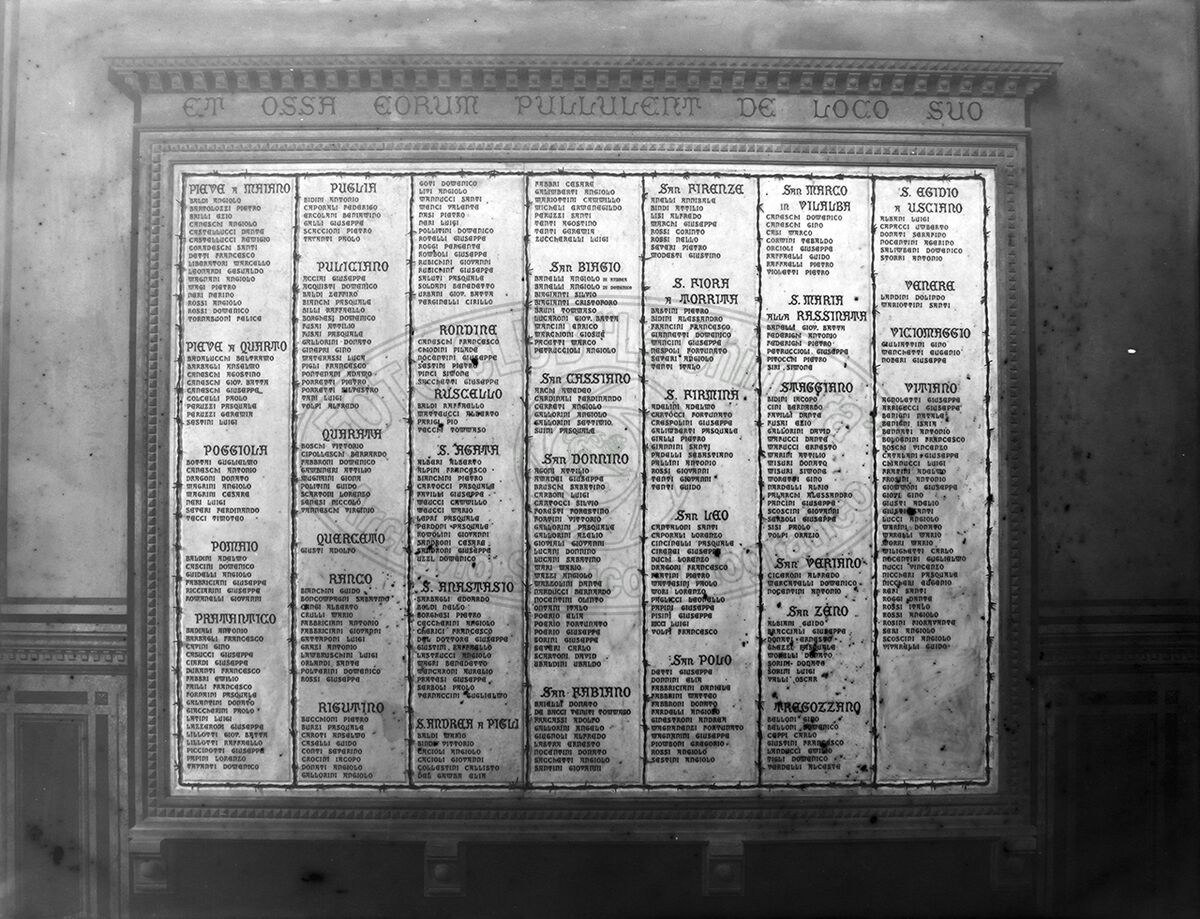 ET OSSA EORUM PULLULENT DE LOCO SUO
PIEVE A MAIANO
BALDI ANGIOLO
BARTOLOZZI PIETRO
BRILLI EZIO
CANESCHI ANGIOLO
CASTELLUCCI DANTE
CASTELLUCCI REMIGIO
CORADESCHI SANTI
DETTI FRANCESCO
LIBERATORI MARCELLO
LEONARDI GESUALDO
MAGNANI ANGIOLO
MAGI PIETRO
NERI NERINO
ROSSI ANGIOLO
ROSSI DOMENICO
TORNABUONI FELICE
PIEVE A QUARTO
BADALUCCHI BELTRAMO
BARBAGLI ANSELMO
CANESCHI AGOSTINO
CANESCHI GIOV. BATTA
CANESCHI GIUSEPPE
COLCELLI PAOLO
PERUZZI PASQUALE
PERUZZI GEREMIA
SESTINI LUIGI
POGGIOLA
BOTTAI GUGLIELMO
CANESCHI ANTONIO
DRAGONI DONATO
MAGRINI ANGIOLO
MAGRINI CESARE
NERI LUIGI
SEVERI FERDINANDO
TECCI TIMOTEO
POMAIO
BALDINI ADELMO
CASCINI DOMENICO
GUIDELLI ANGIOLO
FABBRICIANI GIUSEPPE
RICCIARINI GIUSEPPE
ROMANELLI GIOVANNI
PRATANTICO
BADIALI ANTONIO
BARBAGLI FRANCESCO
CAPINI GINO
CASUCCI GIUSEPPE
CIARDI GIUSEPPE
DURANTI FRANCESCO
FABBRI EMILIO
FAILLI FRANCESCO
FORNAINI PASQUALE
GALANTINI DONATO
GIACCHERINI PAOLO
LATINI LUIGI
LAZZERONI GIUSEPPE
LILLOTTI GIOV. BATTA
LILLOTTI RAFFAELLO
PICCINOTTI GIUSEPPE
PAPINI LORENZO
TAVANTI DOMENICO
PUGLIA
BIDINI ANTONIO
CAPORALI FEDERIGO
ERCOLANI BENIAMINO
GALLI GIUSEPPE
SCACCIONI PIETRO
TAVANTI PAOLO
PULICIANO
ACCINI GIUSEPPE
ACQUISTI DOMENICO
BALDI ZEFFIRO
BIANCHI PASQUALE
BILLI RAFFAELLO
BORGHESI DOMENICO
FUSAI ATTILIO
FUSAI PASQUALE
GALLORINI DONATO
GINEPRI GINO
MATERASSI LUCA
PIGLI FRANCESCO
PONTENANI ADAMO
PORRETTI PIETRO
PORRETTI SILVESTRO
TANI LUIGI
VOLPI ALFREDO
QUARATA
BOSCHI VITTORIO
CIPOLLESCHI BERNARDO
FABBRONI DOMENICO
GAMBINERI ATTILIO
MUGNAINI GIONA
POLITINI GUIDO
SCARTONI LORENZO
SENESI PICCOLO
VANNESCHI VIRGINIO
QUERCETO
GIUSTI ADOLFO
RANCO
BIANCHINI GUIDO
BONCOMPAGNI SABATINO
CANGI ALBERTO
CRULLI MARIO
FABBRICIANI ANTONIO
FABBRICIANI GIOVANNI
GATTAPONI LUIGI
GRAZI ANTONIO
LAMBRUSCHINI LUIGI
ORLANDI SANTE
POLVERINI DOMENICO
ROSSI GIUSEPPE
RIGUTINO
BUCCHIONI PIETRO
BURRI PASQUALE
CAROTI ANSELMO
CASELLI GUIDO
CONTI SEVERINO
CROCINI IACOPO
DONATI ANGIOLO
GALLORINI ANGIOLO
GOTI DOMENICO
LIVI ANGIOLO
MANNUCCI SANTI
MENCI VALENTE
NASI PIETRO
NERI LUIGI
POLLITINI DOMENICO
ROTELLI GIUSEPPE
ROGGI PERGENTE
ROMBOLI GIUSEPPE
RUBICHINI GIOVANNI
RUBICHINI GIUSEPPE
SALUTI PASQUALE
SOLDANI BENEDETTO
URBANI GIOV. BATTA
VERGINELLI CIRILLO
RONDINE
CANESCHI FRANCESCO
CHIODINI PILADE
NOCENTINI GIUSEPPE
SESTINI PIETRO
VINCI SIMONE
SACCHETTI GIUSEPPE
RUSCELLO
BALDI RAFFAELLO
MATTEUCCI ALBERTO
PARIGI PIO
TECCHI TOMMASO
S. AGATA
ALBERI ALBERTO
ALPINI FRANCESCO
BIANCHINI PIETRO
CARTOCCI PASQUALE
FAVILLI GIUSEPPE
MEUCCI CAMILLO
MEUCCI MARIO
LEPRI PASQUALE
PERONI PASQUALE
ROMOLINI GIOVANNI
SANDRONI CESARE
SANDRONI GIUSEPPE
UZZI DOMENICO
S. ANASTASIO
BARBAGLI EDOARDO
BOLDI NELLO
BORGHESI PIETRO
CECCHERINI ANGIOLO
CHERICI FRANCESCO
DEL DOTTORE GIUSEPPE
GIUSTINI RAFFAELLO
LASTRUCCI ANGIOLO
MAGRI BENEDETTO
MANCARONI AURELIO
PRATESI GIUSEPPE
SERBOLI PAOLO
VERNACCINI GUGLIELMO
S. ANDREA A PIGLI
BALDI MARIO
BINDI VITTORIO
CACIOLI ANGIOLO
CACIOLI GIOVANNI
COLLESTINI CALLISTO
DEL GAMBA ELIA
FABBRI CESARE
GALIMBERTI ANGIOLO
MARIOTTINI CAMMILLO
MICHELI GARENEGILDO
PERUZZI SANTI
TENTI AGOSTINO
TENTI GEREMIA
ZUCCHERELLI LUIGI
San BIAGIO
BANELLI ANGIOLO DI
BANELLI ANGIOLO DI DOMENICO
BIAGIANTI SILVIO
BIAGIANTI CRISTOFORO
BRUNI TOMMASO
LUCARONI GIOV. BATTA
MANCINI ENRICO
MARCHIONI GIOSUÈ
PACETTI MARCO
PETRUCCIOLI ANGIOLO
San CASSIANO
ARCHI AMADEO
CARDINALI FERDINANDO
CERRETI ANGIOLO
GALLORINI ANGIOLO
GALLORINI SETTIMIO
SUINI PASQUALE
San DONNINO
AGONI ATTILIO
AMADEI GIUSEPPE
BRUSCHI SABATINO
CARBONI LUIGI
CARTOCCI SILVIO
FORESTI FORESTINO
FORTINI VITTORIO
GALLORINI PASQUALE
GALLORINI AZELIO
GIOVIALI GIOVANNI
LUCANI DONNINO
LUCANI SABATINO
MARI MARIO
MAZZI ANGIOLO
MAZZOLINI DANTE
NARDUCCI BERNARDO
NOCENTINI OLINTO
ONTANI ITALO
POERIO ELIA
POERIO FORTUNATO
POERIO GIUSEPPE
SORINI GIUSEPPE
SEVERI CARLO
SCARTONI DAVID
UBALDINI UBALDO
San FABIANO
BAIELLI DONATO
DE BACCI VENUTI TOMMASO
FRACASSI ADOLFO
GAMBINERI ANGIOLO
GIUGNOLI ALFREDO
LASTRA ERNESTO
NOCENTINI DONATO
SACCHETTI ANGIOLO
SANTINI GIOVANNI
San FIRENZE
AGNELLI ANNIBALE
BINDI ATTILIO
LISI ALFREDO
MARCHI GIUSEPPE
ROSSI CORINTO
ROSSI NELLO
SEVERI PIETRO
MODESTI GIUSTINO
S. FIORA
A TORRITA
BASTINI PIETRO
BIDINI ALESSANDRO
FRANCINI FRANCESCO
GIANNETTI DOMENICO
MANCINI GIUSEPPE
NESPOLI FORTUNATO
SEVERI ANGIOLO
TANTI ITALO
S. FIRMINA
ADELINI ADELMO
CARTOCCI FORTUNATO
CRESPOLINI GIUSEPPE
GALIMBERTI PASQUALE
GIALLI PIETRO
GIANNINI SANTI
PARDELLI SEBASTIANO
PALLINI ANTONIO
ROSSI GIOVANNI
TANTI GIOVANNI
TANTI GUIDO
San LEO
CANTALONI SANTI
CAPORALI LORENZO
CINCINELLI PASQUALE
CIABINI GIUSEPPE
BUCHI LORENZO
DRAGONI FRANCESCO
MARTINI PIETRO
MATTESINI PAOLO
MORI LORENZO
PAGLICCI LEONELLO
PAPINI GIUSEPPE
PISINI GIUSEPPE
LUIGI
VOLPI FRANCESCO
San POLO
DETTI GIUSEPPE
DONNINI ELIA
FABBRICIANI DANIELE
FABBRINI MATTEO
FABBRONI DONATO
FARDELLI ANGIOLO
GINESTRONI ANDREA
MAGNANENZI FORTUNATO
MAGNANINI GIUSEPPE
PIOMBONI GREGORIO
ROSSI ANGIOLO
SESTINI ANGIOLO
San MARCO
in VILALBA
CANESCHI DOMENICO
CANESCHI GINO
CASI MARCO
CORVINI TEBALDO
ORCIOLI GIUSEPPE
RAFFAELLI GUIDO
RAFFAELLI PIETRO
VIOLETTI PIETRO
S. MARIA
ALLA RASSINATA
BANELLI GIOV. BATTA
FEDERIGHI ANTONIO
FEDERIGHI PIETRO
PETRUCCIOLI GIUSEPPE
PITOCCHI PIETRO
SIRI SIMONE
STAGGIANO
BIDINI IACOPO
CINI BERNARDO
FAVILLI DANTE
FUSAI EZIO
GALLORINI DAVID
MARUCCI DANTE
MARUCCI ERNESTO
MARINI ATTILIO
MISURI DONATO
MISURI SIMONE
MORETTI GINO
NARDELLI ALBIO
PALARCHI ALESSANDRO
PANCINI GIUSEPPE
SCOSCINI GIOVANNI
SERBOLI GIUSEPPE
SISI PAOLO
VOLPI ORAZIO
San VERIANO
CICERONI ALFREDO
MERCATELLI DOMENICO
NOCENTINI ANTONIO
San ZENO
ALBIANI GUIDO
BRACCIALI GIUSEPPE
DONATI ERNESTO
GHEZZI PASQUALE
MORELLI DONATO
SORINI DONATO
SORINI
VALLI OSCAR
TREGOZZANO
BELLONI GINO
BELLONI DOMENICO
CEPPI CARLO
GIUSTINI FRANCESCO
LANDUCCI EMILIO
TIGLI DOMENICO
VERDELLI ALCESTE
S. EGIDIO
A USCIANO
ALBANI LUIGI
CAPACCI UMBERTO
DONATI SERAFINO
NOCENTINI AGERINO
SALIMBENI DOMENICO
STORRI ANTONIO
VENERE
LANDINI DOLINDO
MARIOTTINI SANTI
VICIOMAGGIO
GIULIATTINI GINO
MENCHETTI EUGENIO
NOFERI GIUSEPPE
VITIANO
AGNOLETTI GIUSEPPE
ARRIGUCCI GIUSEPPE
BENIGNI NATALE
BENIGNI ISAIA
BENNATI ANTONIO
BOLOGNINI FRANCESCO
BOSCHI VINCENZO
CATALANI GIUSEPPE
CHIANUCCI LUIGI
FRATINI ADELMO
FROSINI ANTONIO
GIOMMONI GIUSEPPE
GIOVI GINO
GIUSTI ANGELO
GIUSTINI SANTI
LUCCI ANGIOLO
MARINI DONATO
MARELLI MARIO
MORI MARIO
MILIGHETTI CARLO
NOCENTINI GUGLIELMO
NUCCI VINCENZO
NICCHERI PASQUALE
NICCHERI EUGENIO
RERI SANTI
ROGGI DANTE
ROSSI ITALO
ROSSINI ANGIOLO
ROSINI FIORAVANTE
SERI ANGIOLO
SCOSCINI ANGIOLO
VITARELLI GUIDO